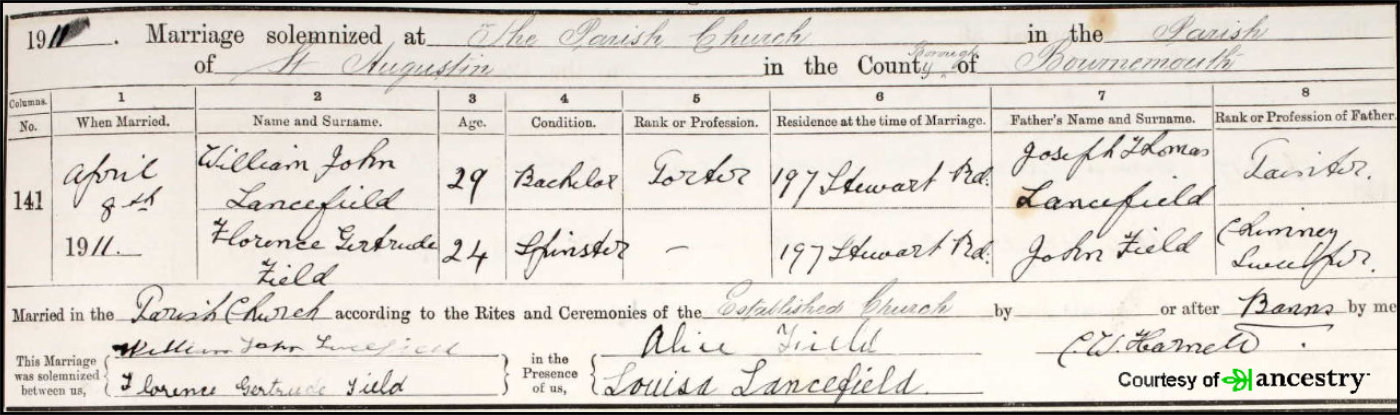 1911. Marriage solemnized at The Parish Church in the Parish
of St Augustin in the County Borough of Bournemouth
Columns. 1 2 3 4 5 6 7 8
No. When Married. Name and Surname. Age. Condition. Rank or Profession. Residence at the time of Marriage. Father's Name and Surname. Rank or Profession of Father.
141 April 8th 1911. William John Lancefield 29 Bachelor Porter 197 Stewart Rd. Joseph Thomas Lancefield Painter.
Florence Gertrude Field 24 Spinster — 197 Stewart Rd. John Field Chimney Sweeper.
Married in the Parish Church according to the Rites and Ceremonies of the Established Church by or after Banns by me
This Marriage was solemnized between us, William John Lancefield
Florence Gertrude Field
in the Presence of us, Alice Field
Louisa Lancefield.
C.W. Harnett.
Courtesy of ancestry